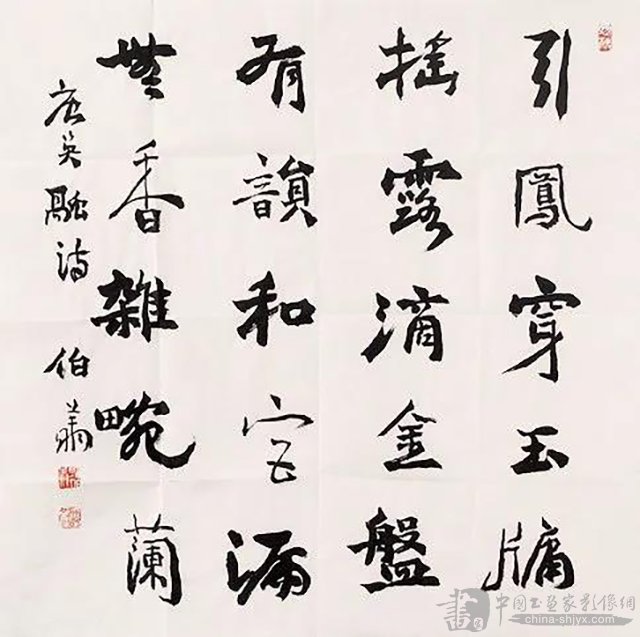 引鳳穿玉牖
摇露滴金盤
有韻和宮漏
無香雜畹蘭
唐吳融诗
伯翦
書 中国书画家影像網
china-shjyx.com